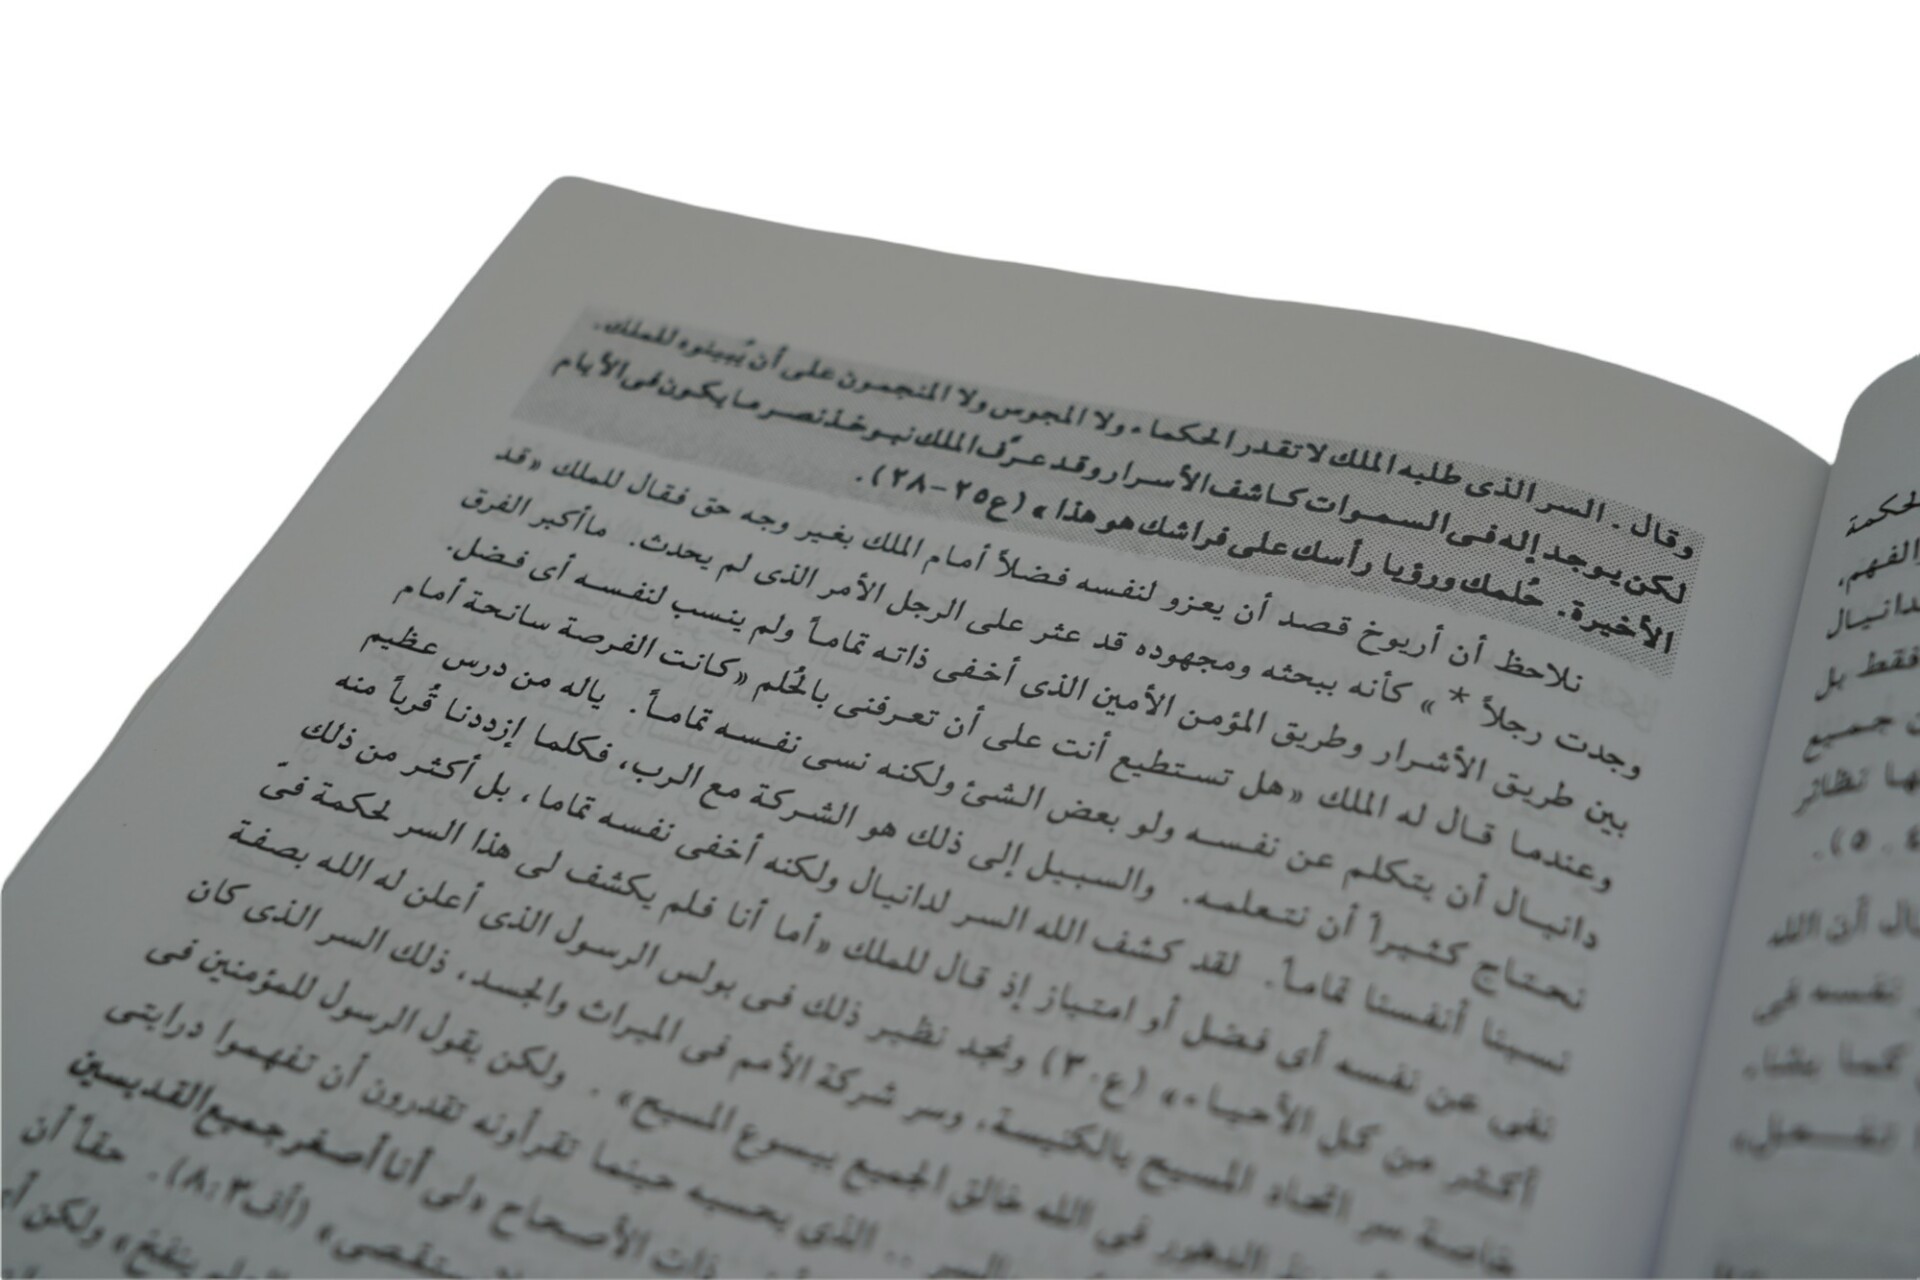 وقال . السر الذى طلبه الملك لا تقدر الحكماء ولا المجوس ولا المنجمون على أن يُبينوه للملك.
لكن يوجد إله فى السموات كاشف الأسرار وقد عرَّف الملك نبوخذنصر ما يكون فى الأيام
الأخيرة. حُلمك ورؤيا رأسك على فراشك هو هذا » (ع٢٥-٢٨).
نلاحظ أن أريوخ قصد أن يعزو لنفسه فضلاً أمام الملك بغير وجه حق فقال للملك «قد
وجدت رجلاً * » كأنه ببحثه ومجهوده قد عثر على الرجل الأمر الذى لم يحدث. ماأكبر الفرق
بين طريق الأشرار وطريق المؤمن الأمين الذى أخفى ذاته تماماً ولم ينسب لنفسه أى فضل.
وعندما قال له الملك «هل تستطيع أنت على أن تعرفنى بالحُلم «كانت الفرصة سانحة أمام
دانيال أن يتكلم عن نفسه ولو بعض الشئ ولكنه نسى نفسه تماماً. ياله من درس عظيم
نحتاج كثيراً أن نتعلمه. والسبيل إلى ذلك هو الشركة مع الرب، فكلما إزددنا قُرباً منه
نسينا أنفسنا تماماً. لقد كشف الله السر لدانيال ولكنه أخفى نفسه تماما، بل أكثر من ذلك
نفى عن نفسه أى فضل أو امتياز إذ قال للملك «أما أنا فلم يكشف لى هذا السر لحكمة فىَّ
أكثر من كل الأحياء» (ع٣٠) ونجد نظير ذلك فى بولس الرسول الذى أعلن له الله بصفة
خاصة سر اتحاد المسيح بالكنيسة، وسر شركة الأمم فى الميراث والجسد، ذلك السر الذى كان
الدهور في الله خالق الجميع بيسوع المسيح» . ولكن يقول الرسول للمؤمنين فى
السر .. الذي بحسبه حينما تقرأونه تقدرون أن تفهموا درايتى
ذات الأصحاح «لى أنا أصغر جميع القديسين
(أف٣:٨). حقاً أن
ينتفخ» ولكن
الحكمة
الفهم،
دانيال
فقط بل
جميع
نظائر
٥).
أن الله
نفسه في
كما يشاء،